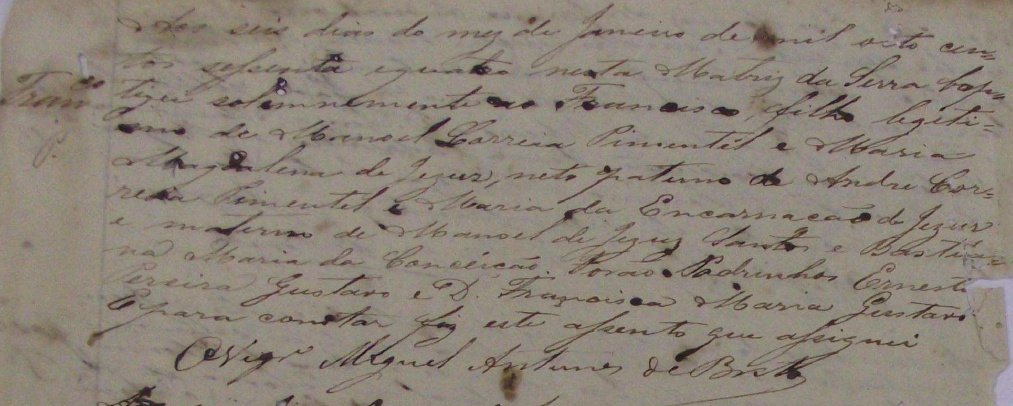 Aos seis dias do mez de Janeiro de mil oito cen=
tos sessenta e quatro nesta Matriz da Serra bap=
Fran.co tizei solemnemente ao Francisco, filho legiti=
P. mo de Manoel Correia Pimentel e Maria
Magdalena de Jezus, neto paterno de Andre Cor=
reia Pimentel e Maria da Encarnacão de Jezus
e materno de Manoel de Jezuz Santos e Bastia=
na Maria da Conceicão. Forão Padrinhos Ernesto
Pereira Gustavo e D. Francisca Maria Gustavo
E para constar fiz este assento que assignei
O Vigr.o Miguel Antunes de Britto